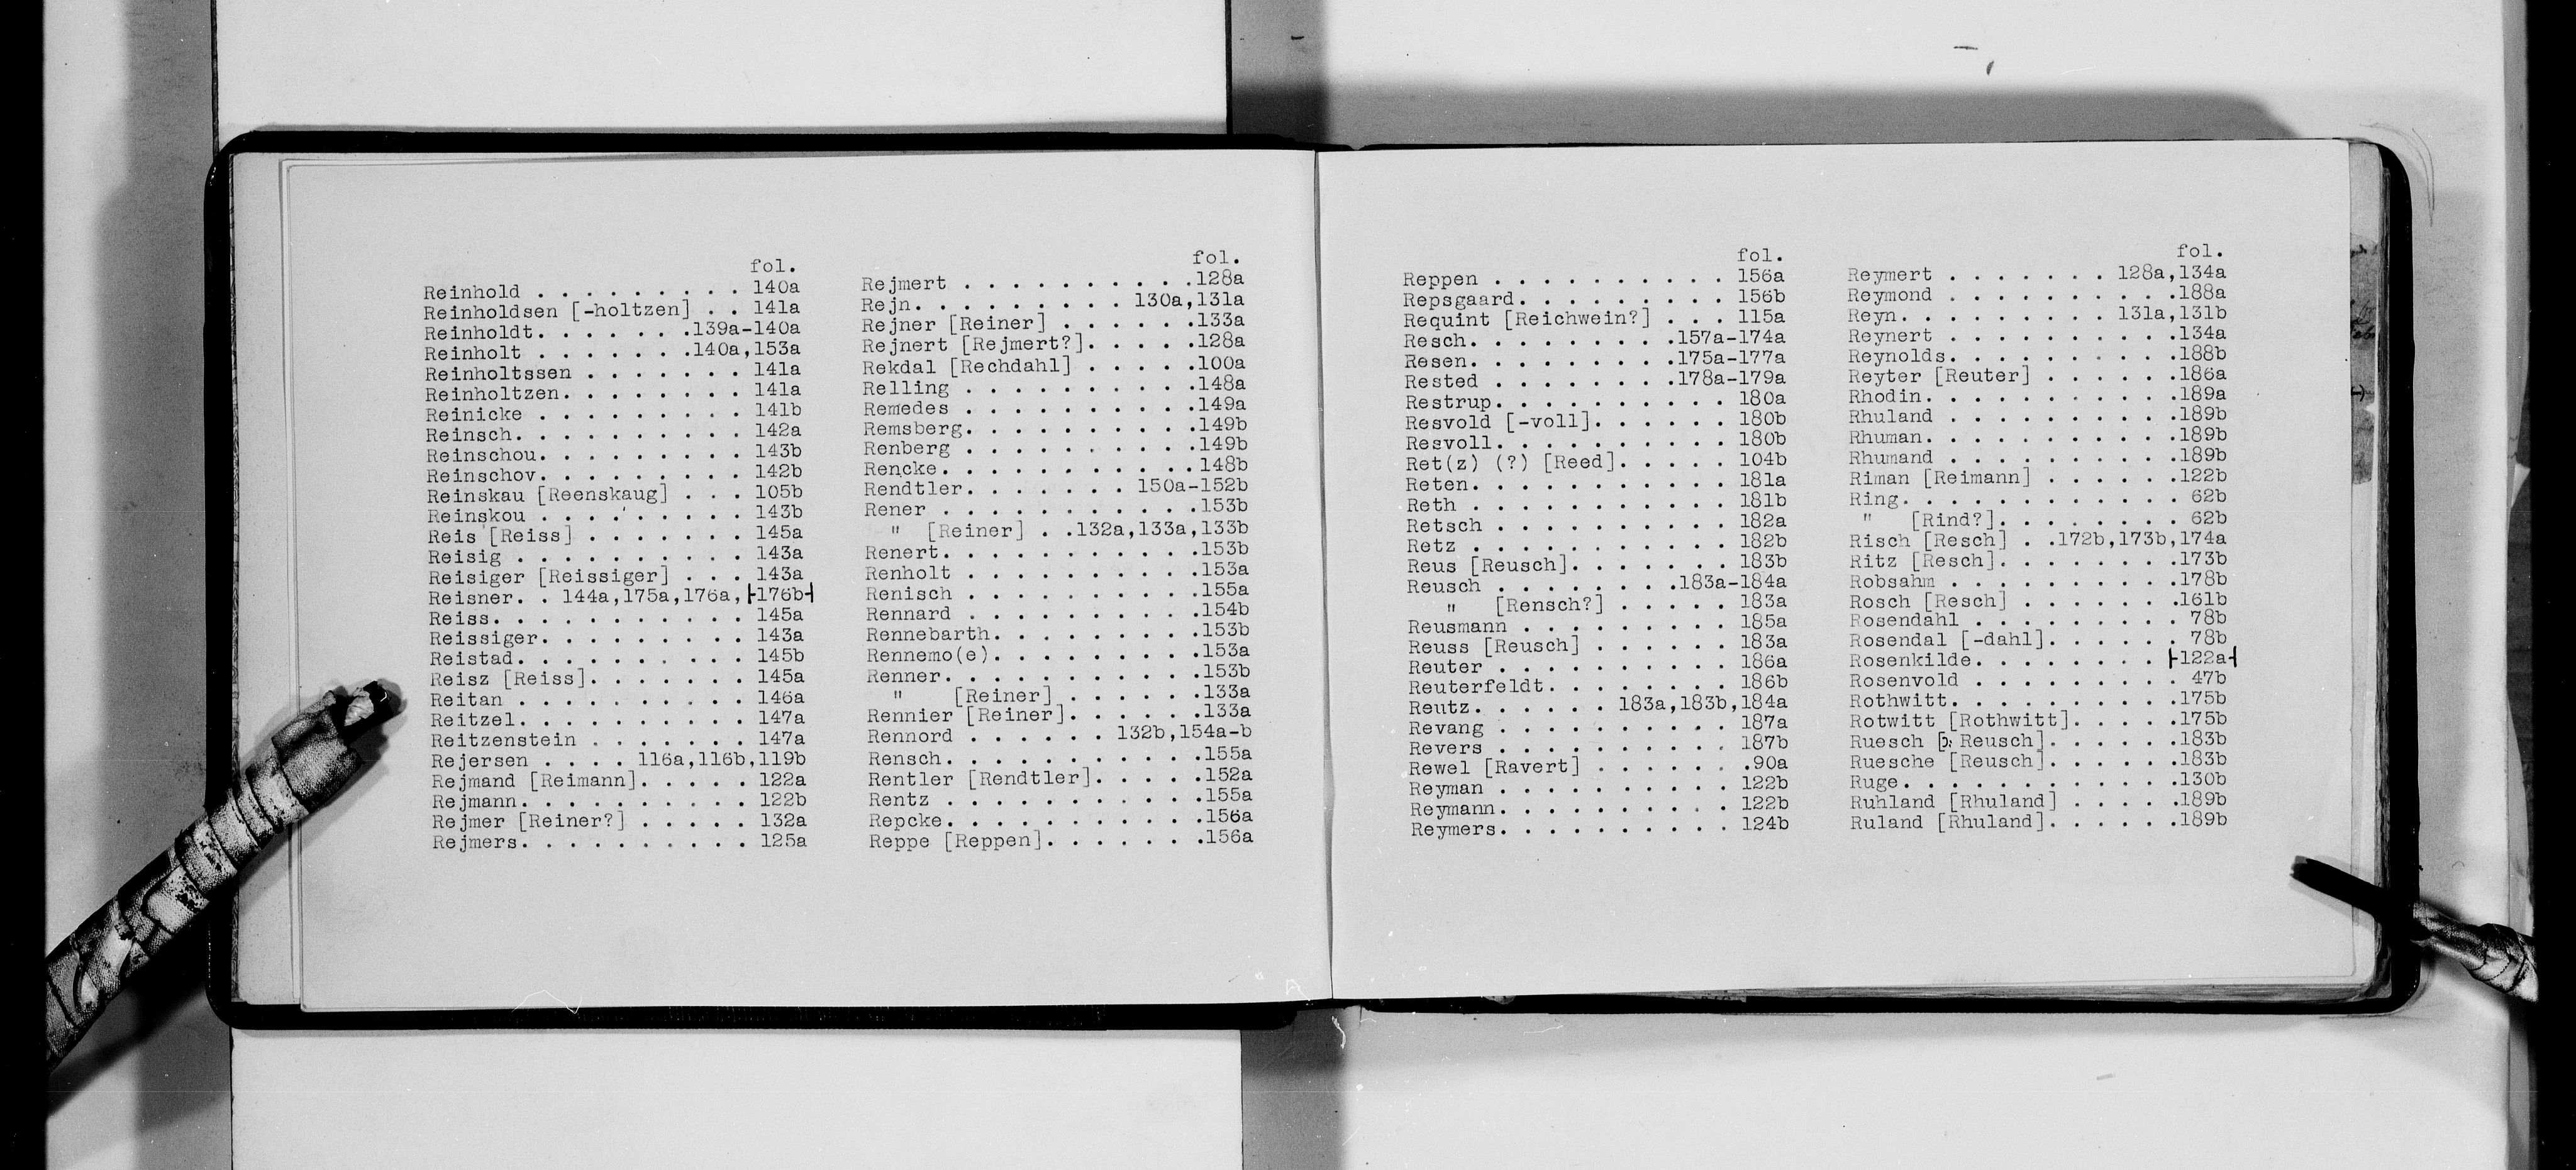 fol.
Reinhold . . . . . . . . . 140a
Reinholdsen [-holtzen] . . 141a
Reinholdt. . . . . . .139a-140a
Reinholt . . . . . . .140a,153a
Reinholtssen . . . . . . . 141a
Reinholtzen. . . . . . . . 141a
Reinicke . . . . . . . . . 141b
Reinsch. . . . . . . . . . 142a
Reinschou. . . . . . . . . 143b
Reinschov. . . . . . . . . 142b
Reinskau [Reenskaug] . . . 105b
Reinskou . . . . . . . . . 143b
Reis [Reiss] . . . . . . . 145a
Reisig . . . . . . . . . . 143a
Reisiger [Reissiger] . . . 143a
Reisner. . 144a,175a,176a,⊦176b⊣
Reiss. . . . . . . . . . . 145a
Reissiger. . . . . . . . . 143a
Reistad. . . . . . . . . . 145b
Reisz [Reiss]. . . . . . . 145a
Reitan . . . . . . . . . . 146a
Reitzel. . . . . . . . . . 147a
Reitzenstein . . . . . . . 147a
Rejersen . . . . 116a,116b,119b
Rejmand [Reimann]. . . . . 122a
Rejmann. . . . . . . . . . 122b
Rejmer [Reiner?] . . . . . 132a
Rejmers. . . . . . . . . . 125a
fol.
Rejmert . . . . . . . . . .128a
Rejn. . . . . . . . . 130a,131a
Rejner [Reiner] . . . . . .133a
Rejnert [Rejmert?]. . . . .128a
Rekdal [Rechdahl] . . . . .100a
Relling . . . . . . . . . .148a
Remedes . . . . . . . . . .149a
Remsberg. . . . . . . . . .149b
Renberg . . . . . . . . . .149b
Rencke. . . . . . . . . . .148b
Rendtler. . . . . . . 150a-152b
Rener . . . . . . . . . . .153b
" [Reiner] . .132a,133a,133b
Renert. . . . . . . . . . .153b
Renholt . . . . . . . . . .153a
Renisch . . . . . . . . . .155a
Rennard . . . . . . . . . .154b
Rennebarth. . . . . . . . .153b
Rennemo(e). . . . . . . . .153a
Renner. . . . . . . . . . .153b
" [Reiner] . . . . . .133a
Rennier [Reiner]. . . . . .133a
Rennord . . . . . . 132b,154a-b
Rensch. . . . . . . . . . .155a
Rentler [Rendtler]. . . . .152a
Rentz . . . . . . . . . . .155a
Repcke. . . . . . . . . . .156a
Reppe [Reppen]. . . . . . .156a
fol.
Reppen . . . . . . . . . . 156a
Repsgaard. . . . . . . . . 156b
Requint [Reichwein?] . . . 115a
Resch. . . . . . . . .157a-174a
Resen. . . . . . . . .175a-177a
Rested . . . . . . . .178a-179a
Restrup. . . . . . . . . . 180a
Resvold [-voll]. . . . . . 180b
Resvoll. . . . . . . . . . 180b
Ret(z) (?) [Reed]. . . . . 104b
Reten. . . . . . . . . . . 181a
Reth . . . . . . . . . . . 181b
Retsch . . . . . . . . . . 182a
Retz . . . . . . . . . . . 182b
Reus [Reusch]. . . . . . . 183b
Reusch . . . . . . . .183a-184a
" [Rensch?] . . . . . 183a
Reusmann . . . . . . . . . 185a
Reuss [Reusch] . . . . . . 183a
Reuter . . . . . . . . . . 186a
Reuterfeldt. . . . . . . . 186b
Reutz. . . . . . 183a,183b,184a
Revang . . . . . . . . . . 187a
Revers . . . . . . . . . . 187b
Rewel [Ravert] . . . . . . .90a
Reyman . . . . . . . . . . 122b
Reymann. . . . . . . . . . 122b
Reymers. . . . . . . . . . 124b
fol.
Reymert . . . . . . . 128a,134a
Reymond . . . . . . . . . .188a
Reyn. . . . . . . . . 131a,131b
Reynert . . . . . . . . . .134a
Reynolds. . . . . . . . . .188b
Reyter [Reuter] . . . . . .186a
Rhodin. . . . . . . . . . .189a
Rhuland . . . . . . . . . .189b
Rhuman. . . . . . . . . . .189b
Rhumand . . . . . . . . . .189b
Riman [Reimann] . . . . . .122b
Ring. . . . . . . . . . . . 62b
" [Rind?]. . . . . . . . 62b
Risch [Resch] . .172b,173b,174a
Ritz [Resch]. . . . . . . .173b
Robsahm . . . . . . . . . .178b
Rosch [Resch] . . . . . . .161b
Rosendahl . . . . . . . . . 78b
Rosendal [-dahl]. . . . . . 78b
Rosenkilde. . . . . . . . ⊦122a⊣
Rosenvold . . . . . . . . . 47b
Rothwitt. . . . . . . . . .175b
Rotwitt [Rothwitt]. . . . .175b
Ruesch [ɔ: Reusch]. . . . . .183b
Ruesche [Reusch]. . . . . .183b
Ruge. . . . . . . . . . . .130b
Ruhland [Rhuland] . . . . .189b
Ruland [Rhuland]. . . . . .189b